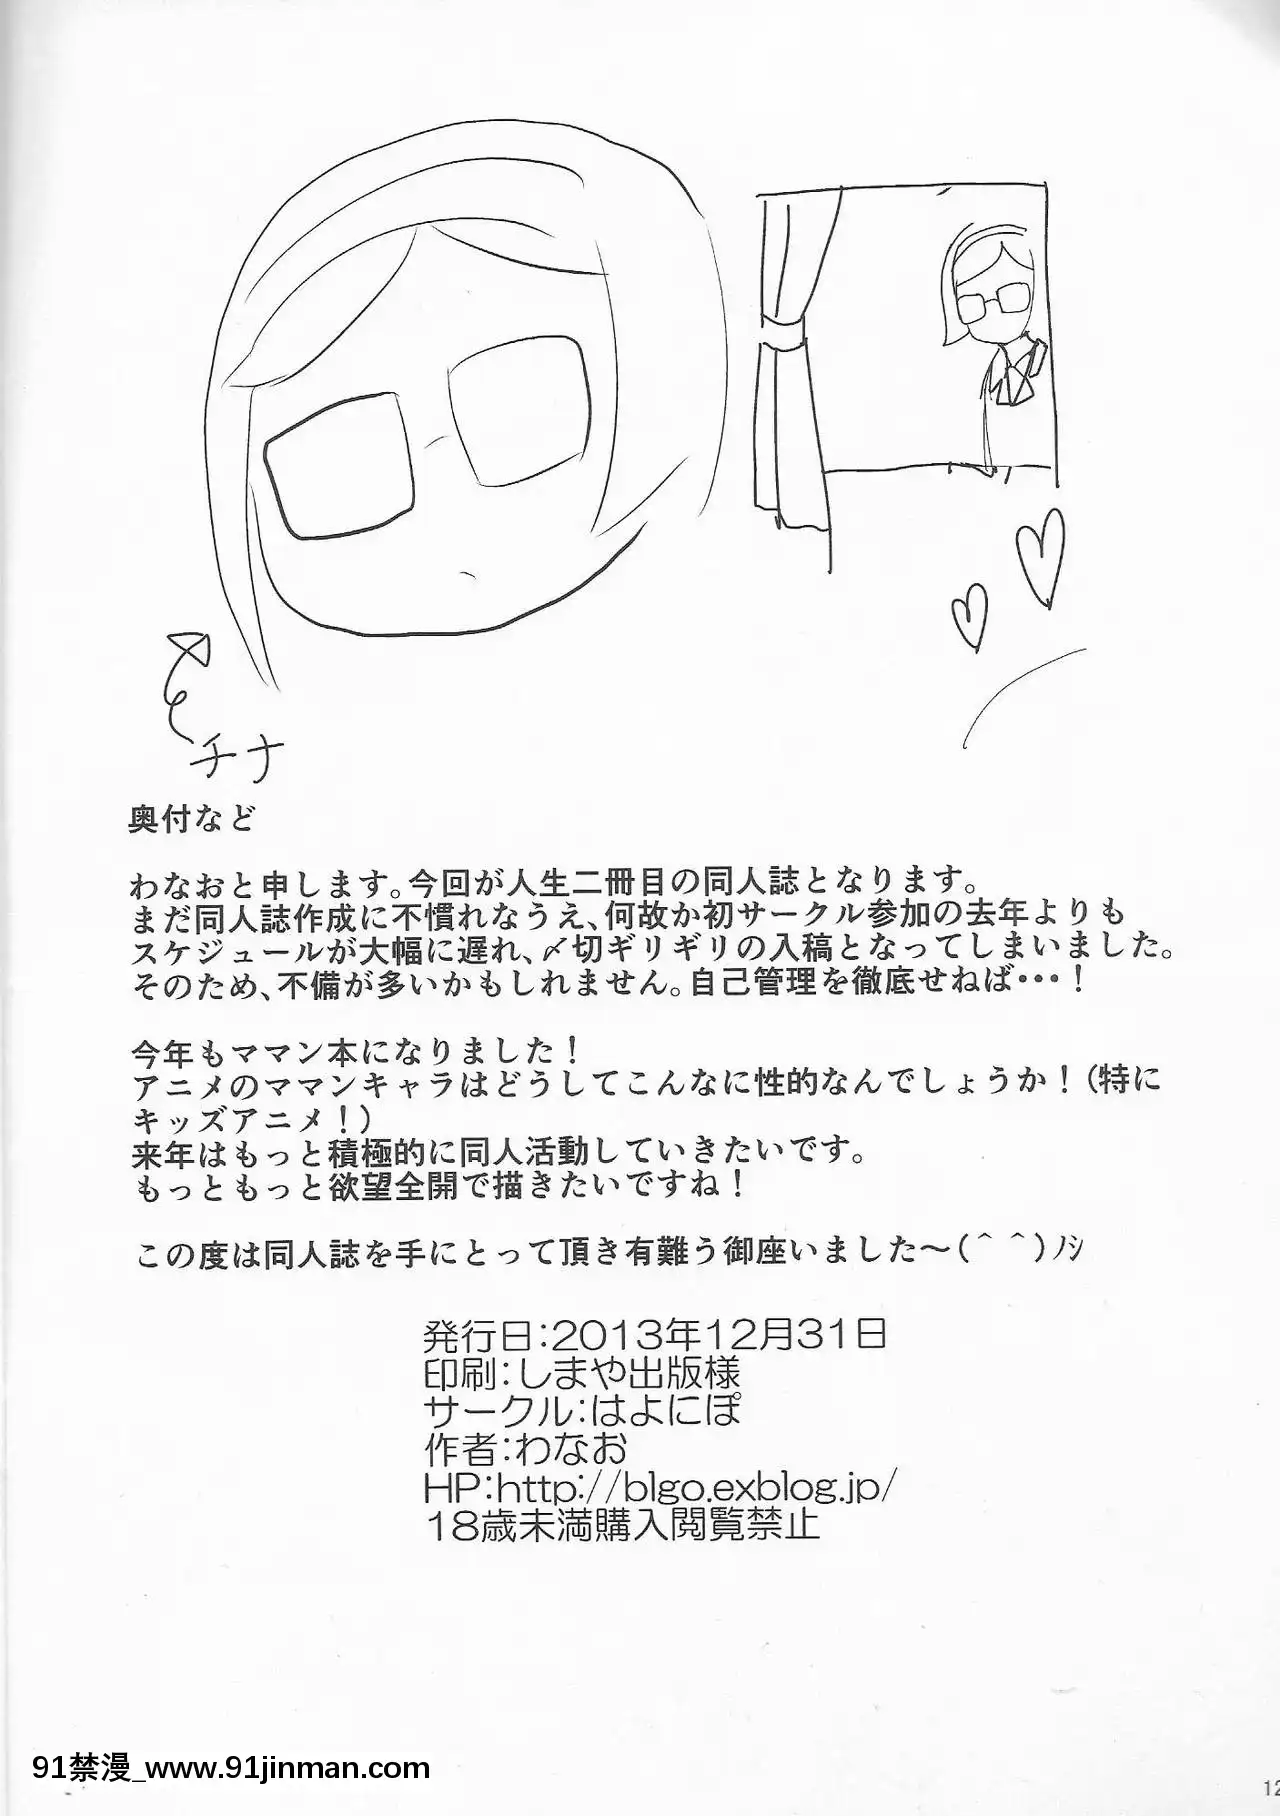 チナ
奥付など
わなおと申します。今回が人生二冊目の同人誌となります。
まだ同人誌作成に不慣れなうえ、何故か初サークル参加の去年よりも
スケジュールが大幅に遅れ、〆切ギリギリの入稿となってしまいました。
そのため、不備が多いかもしれません。自己管理を徹底せねば・・・！
今年もママン本になりました！
アニメのママンキャラはどうしてこんなに性的なんでしょうか！（特に
キッズアニメ！）
来年はもっと積極的に同人活動していきたいです。
もっともっと欲望全開で描きたいですね！
この度は同人誌を手にとって頂き有難う御座いました～(＾＾)ﾉｼ
発行日：2013年12月31日
印刷：しまや出版様
サークル：はよにぽ
作者：わなお
HP:http://blgo.exblog.jp/
18歳未満購入閲覧禁止
91禁漫_www.91jinman.com
12